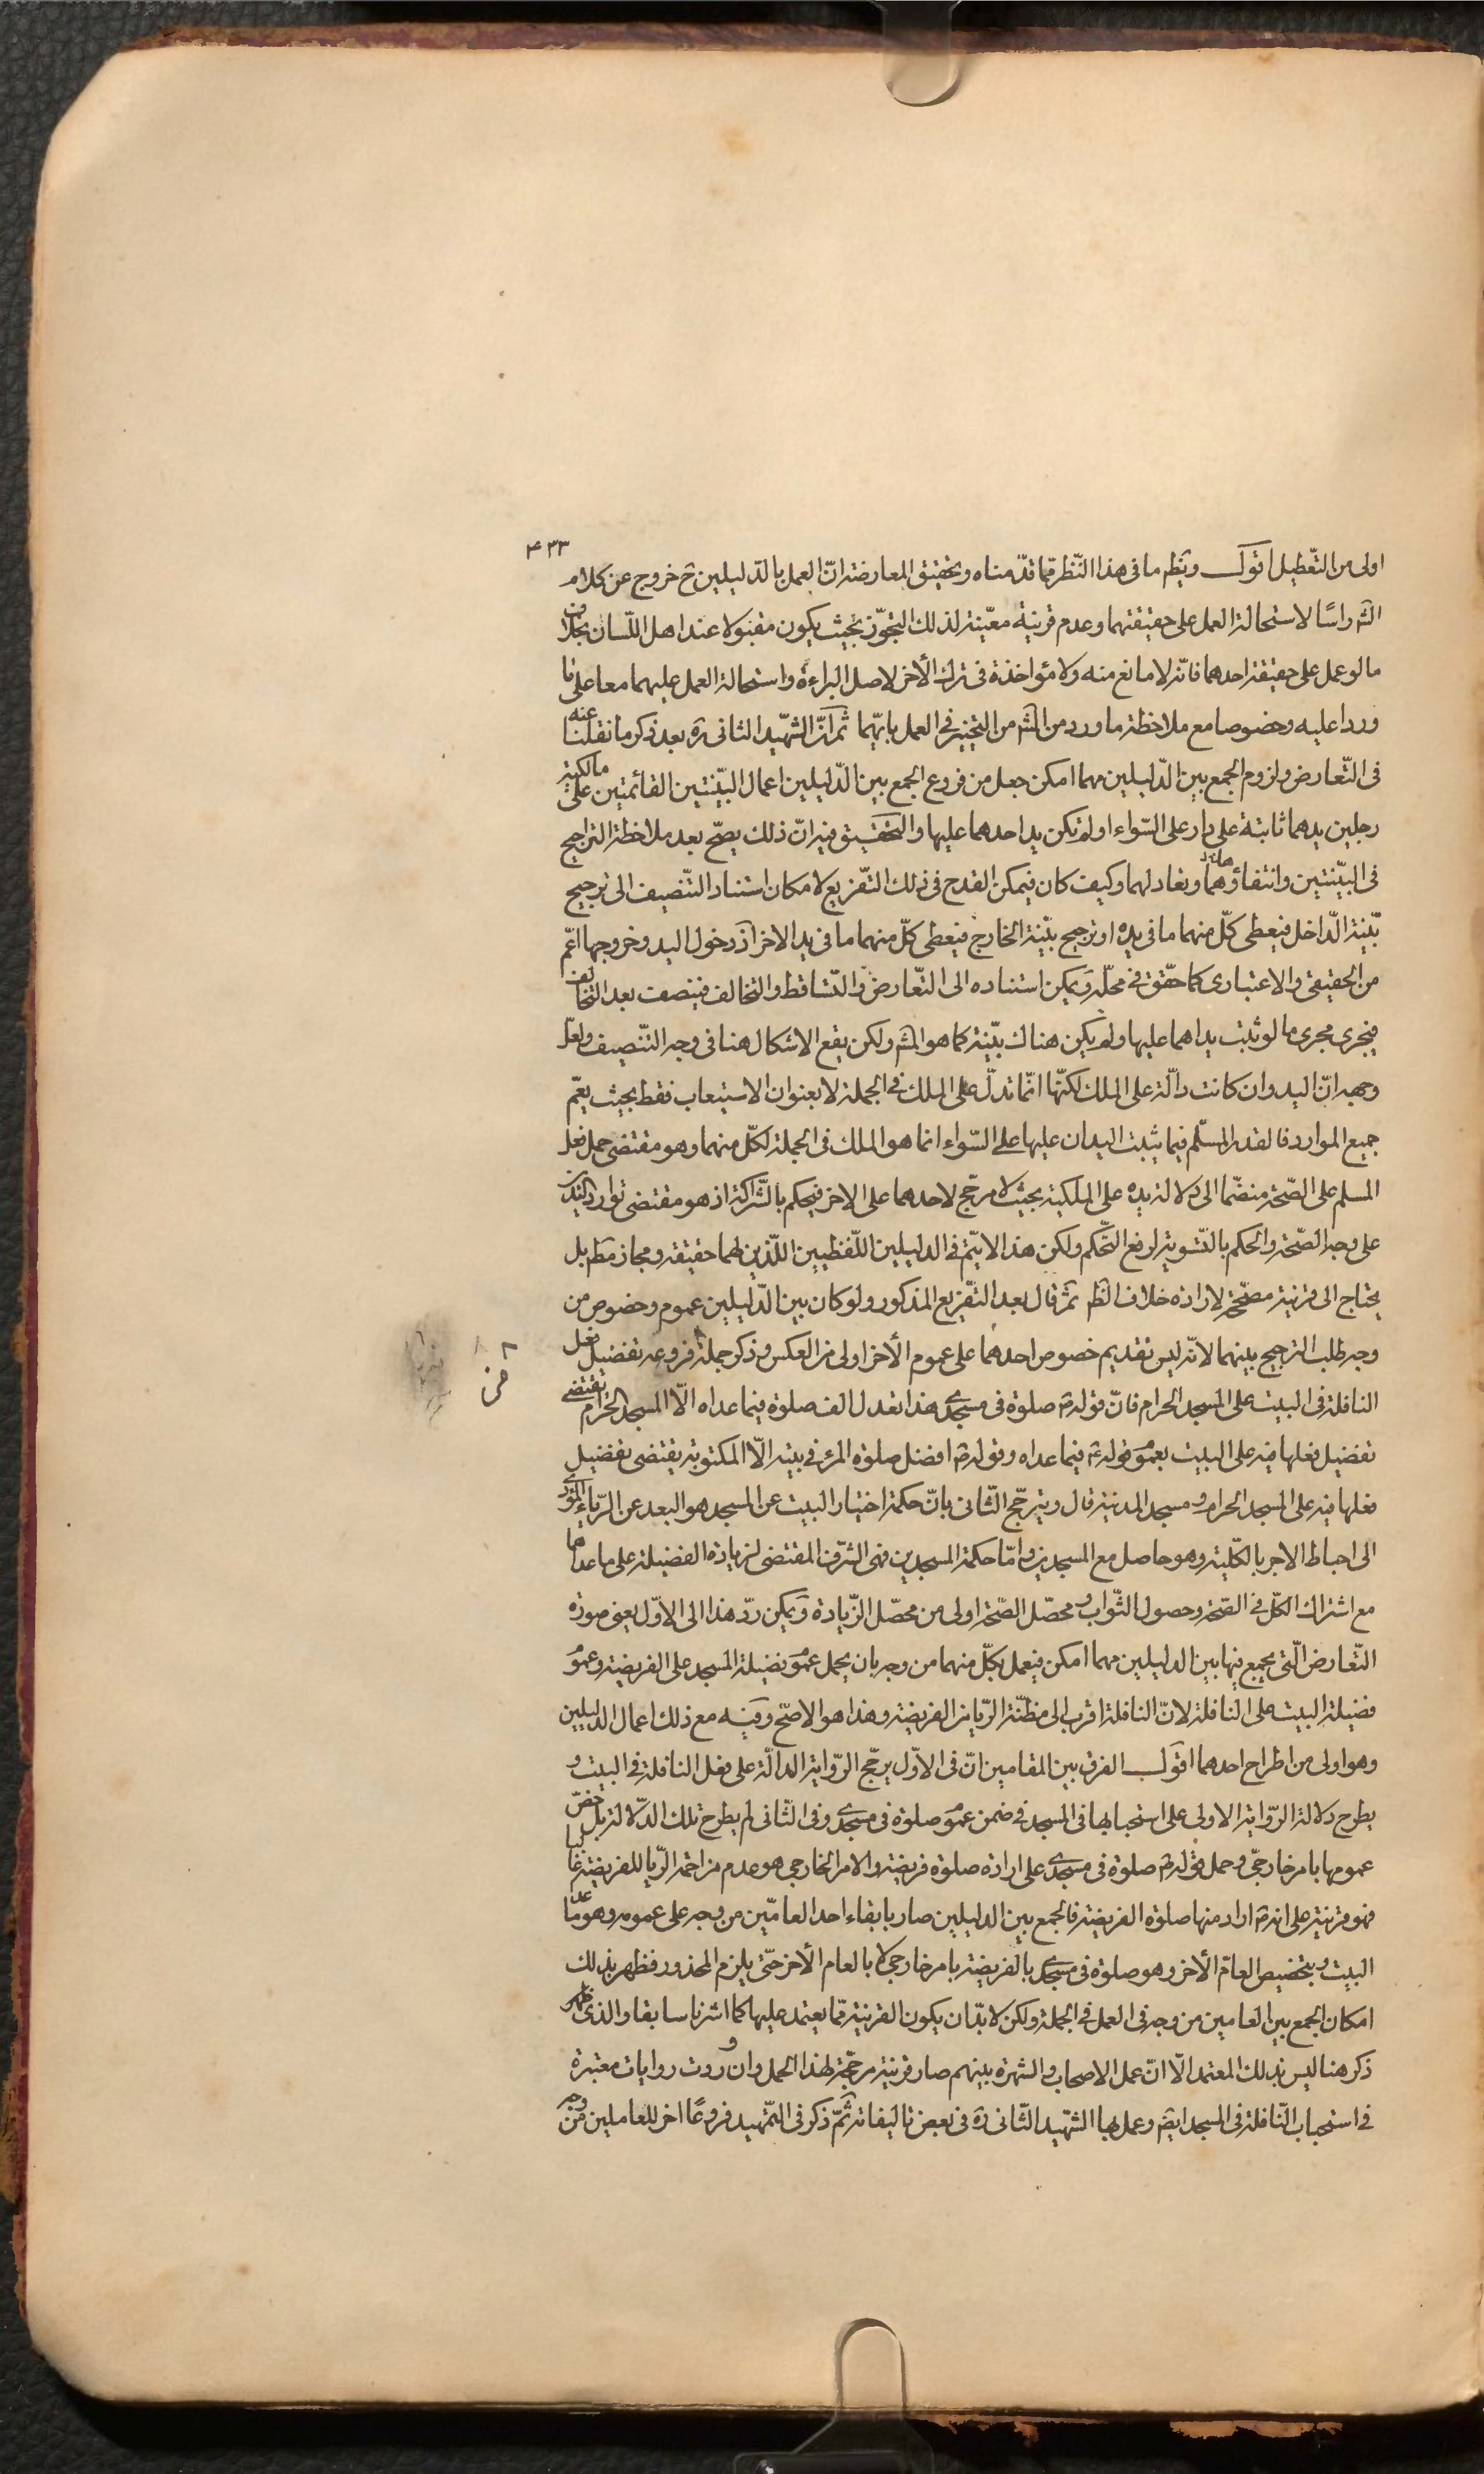 ۴۳۳
اولى من التّعطيل اقول ويظهر ما فى هذا النّظر ممّا قدّمناه وتحقيق المعارضة انّ العمل بالدّليلين ح خروج عن كلام
الشه راسًا لاستحالة العمل على حقيقتهما وعدم قرينة معيّنة لذلك التجوّز بحيث يكون مقبولا عند اهل اللّسان بخلاف
ما لو عمل على حقيقة احدهما فانّه لا مانع منه ولا مؤاخذة فى ترك الأخر لاصل البراءة واستحالة العمل عليهما معا على ما
وردا عليه وخصوصا مع ملاحظة ما ورد من الشه من التخيير فى العمل بايّهما ثمّ انّ الشهيد الثانى ره بعد ذكر ما نقلنا عنه
فى التّعارض ولزوم الجمع بين الدّليلين مهما امكن جعل من فروع الجمع بين الدّليلين اعمال البيّنتين القائمتين على مالكيّة
رجلين يدهما ثابتة على دار على السّواء او لم تكن يد احدهما عليها والتحقيق فيه انّ ذلك يصحّ بعد ملاحظة التراجيح
فى البيّنتين وانتفاؤهما وتعادلهما وكيف كان فيمكن القدح فى ذلك التّفريع لامكان استناد التّنصيف الى ترجيح
بيّنة الدّاخل فيعطى كلّ منهما ما فى يده او ترجيح بيّنة الخارج فيعطى كلّ منهما ما فى يد الاخر اذ دخول اليد وخروجها اعّم
من الحقيقى والاعتبارى كما حقّق فى محلّه ويمكن استناده الى التّعارض والتّساقط والتخالف فينصف بعد التحالف
فيجرى مجرى ما لو ثبت يداهما عليها ولم يكن هناك بيّنة كما هو المشه ولكن يقع الاشكال هنا فى وجه التّنصيف ولعلّ
وجهه انّ اليد وان كانت دالّة على الملك لكنّها انّما تدلّ على الملك فى الجملة لا بعنوان الاستيعاب فقط بحيث يعّم
جميع الموارد فالقدر المسلّم فيما يثبت اليدان عليها على السّواء انما هو الملك فى الجملة لكلّ منهما وهو مقتضى حمل فعل
المسلم على الصّحة منضّما الى دلالة يده على الملكية بحيث لا مرجّح لاحدهما على الاخر فيحكم بالشّراكة اذ هو مقتضى توارد اليدين
على وجه الصّحة والحكم بالتّسوية لرفع التّحكم ولكن هذا لا يتمّ فى الدليلين اللّفظيين اللّذين لهما حقيقة ومجاز مط بل
يحتاج الى قرينة مصحّحة لارادة خلاف الظه ثمّ قال بعد التّفريع المذكور ولو كان بين الدّليلين عموم وخصوص من
وجه طلب الترجيح بينهما لانّه ليس تقديم خصوص احدهما على عموم الأخر اولى من العكس وذكر جملة فروعه تفضيل فعل
النافلة فى البيت على المسجد الحرام فانّ قوله ص صلوة فى مسجدى هذا تعدل الف صلوة فيما عداه الّا المسجد الحرام يقتضى
تفضيل فعلها فيه على البيت بعموم قوله ص فيما عداه وقوله ص افضل صلوة المرء فى بيته الّا المكتوبة يقتضى تفضيل
فعلها فيه على المسجد الحرام ومسجد المدينة قال ويترجّح الثّانى بانّ حكمة اختيار البيت عن المسجد هو البعد عن الرّياء المؤدى
الى احباط الاجر بالكّلية وهو حاصل مع المسجدين وامّا حكمة المسجدين فهى الشرف المقتضى لزيادة الفضيلة على ما عداهما
مع اشتراك الكلّ فى الصّحة وحصول الثّواب ومحصّل الصّحة اولى من محصّل الزّيادة ويمكن ردّ هذا الى الاوّل يعنى صورة
التّعارض الّتى يجمع فيها بين الدليلين مهما امكن فيعمل بكلّ منهما من وجه بان يحمل عموم فضيلة المسجد على الفريضة وعموم
فضيلة البيت على النافلة لانّ النافلة اقرب الى مظنّة الرّيا من الفريضة وهذا هو الاصّح وفيه مع ذلك اعمال الدليلين
وهو اولى من اطراح احدهما اقول الفرق بين المقامين انّ فى الاوّل يرجّح الرّواية الدالّة على فعل النافلة فى البيت و
يطرح دلالة الرّواية الاولى على استحبابها فى المسجد فى ضمن عموم صلوة فى مسجدى وفى الثّانى لم يطرح تلك الدّلالة بل خصّ
عمومها بامر خارجىّ وحمل قوله ص صلوة فى مسجدى على ارادة صلوة فريضة والامر الخارجى هو عدم مزاحمة الرّيا للفريضة غالبا
فهو قرينة على انه ص اراد منها صلوة الفريضة فالجمع بين الدليلين صار بابقاء احد العامّين من وجه على عمومه وهو ما عدا
البيت وبتخصيص العامّ الأخر وهو صلوة فى مسجدى بالفريضة بامر خارجى لا بالعام الأخر حتّى يلزم المحذور فظهر بذلك
امكان الجمع بين العامين من وجه فى العمل فى الجملة ولكن لا بدّ ان يكون القرينة ممّا يعتمد عليها كما اشرنا سابقا والذى ظهر
ذكر هنا ليس بذلك المعتمد الّا انّ عمل الاصحاب والشهرة بينهم صار قرينة مرجّحة لهذا الحمل وان وردت روايات معتبرة
فى استحباب النّافلة فى المسجد ايضه وعمل بها الشهيد الثّانى ره فى بعض تاليفاته ثمّ ذكر فى التّمهيد فروعًا اخر للعاملين من وجه